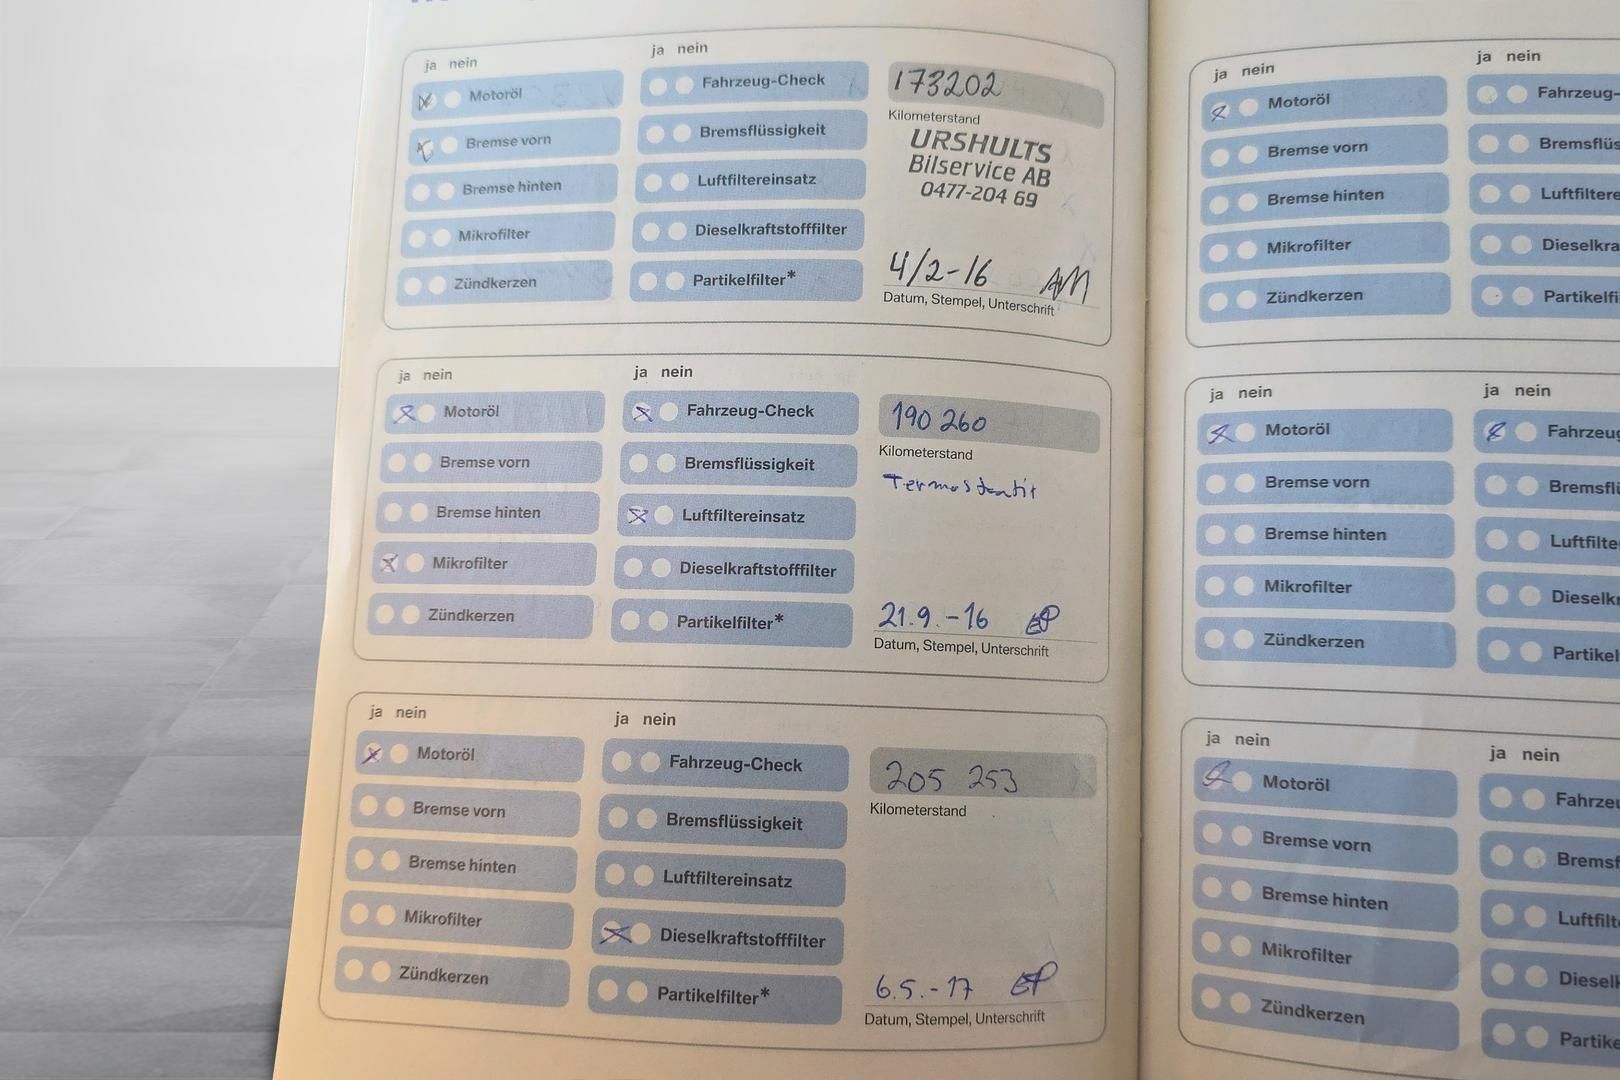 ja nein
Motoröl
Bremse vorn
Bremse hinten
Mikrofilter
Zündkerzen
ja nein
Fahrzeug-Check
Bremsflüssigkeit
Luftfiltereinsatz
Dieselkraftstofffilter
Partikelfilter*
173202
Kilometerstand
URSHULTS
Bilservice AB
0477-204 69
4/2-16 AM
Datum, Stempel, Unterschrift
ja nein
Motoröl
Bremse vorn
Bremse hinten
Mikrofilter
Zündkerzen
ja nein
Fahrzeug-Check
Bremsflüssigkeit
Luftfiltereinsatz
Dieselkraftstofffilter
Partikelfilter*
190 260
Kilometerstand
21.9.-16
Datum, Stempel, Unterschrift
ja nein
Motoröl
Bremse vorn
Bremse hinten
Mikrofilter
Zündkerzen
ja nein
Fahrzeug-Check
Bremsflüssigkeit
Luftfiltereinsatz
Dieselkraftstofffilter
Partikelfilter*
205 253
Kilometerstand
6.5.-17
Datum, Stempel, Unterschrift
ja nein
Motoröl
Bremse vorn
Bremse hinten
Mikrofilter
Zündkerzen
ja nein
Fahrzeug-
Bremsflüs
Luftfiltere
Dieselkra
Partikelfi
ja nein
Motoröl
Bremse vorn
Bremse hinten
Mikrofilter
Zündkerzen
ja nein
Fahrzeug
Bremsflü
Luftfilte
Dieselkr
Partikel
ja nein
Motoröl
Bremse vorn
Bremse hinten
Mikrofilter
Zündkerzen
ja nein
Fahrze
Bremsf
Luftfilt
Diesel
Partike